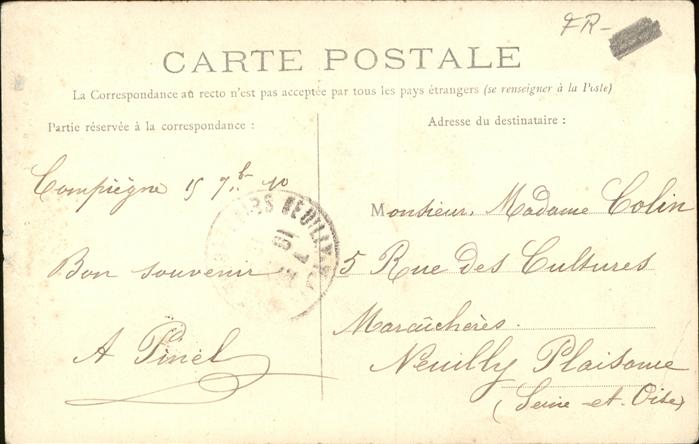 FR-
CARTE POSTALE
La Correspondance au recto n'est pas acceptée par tous les pays étrangers (se renseigner à la Poste)
Partie réservée à la correspondance :
Compiègne 15 7.bre 10
Bon souvenir
A Pinel
NEUILLY
Adresse du destinataire :
Monsieur, Madame Colin
5 Rue des Cultures
Maraîchères.
Neuilly Plaisance
(Seine-et-Oise)